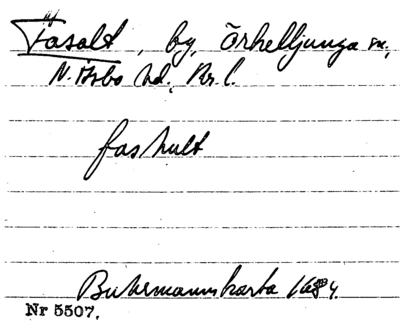 Fasalt, by, Örkelljunga sn,
N. Åsbo hd, Kr. l.
fashult
Buhrmanns karta 1684.
Nr 5507.